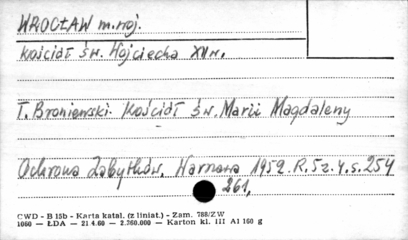 WROCŁAW m.woj.
Kościół Św. Wojciecha XII w.
T. Broniewski. Kościół Św. Marii Magdaleny
Ochrona Zabytków, Warszawa 1952. R. 5 z. 4. s. 254
261,
CWD - B 15b - Karta katal. (z liniat.) - Zam. 788/ZW
1060 — ŁDA — 21.4.60 — 2.260.000 — Karton kl. III A1 160 g